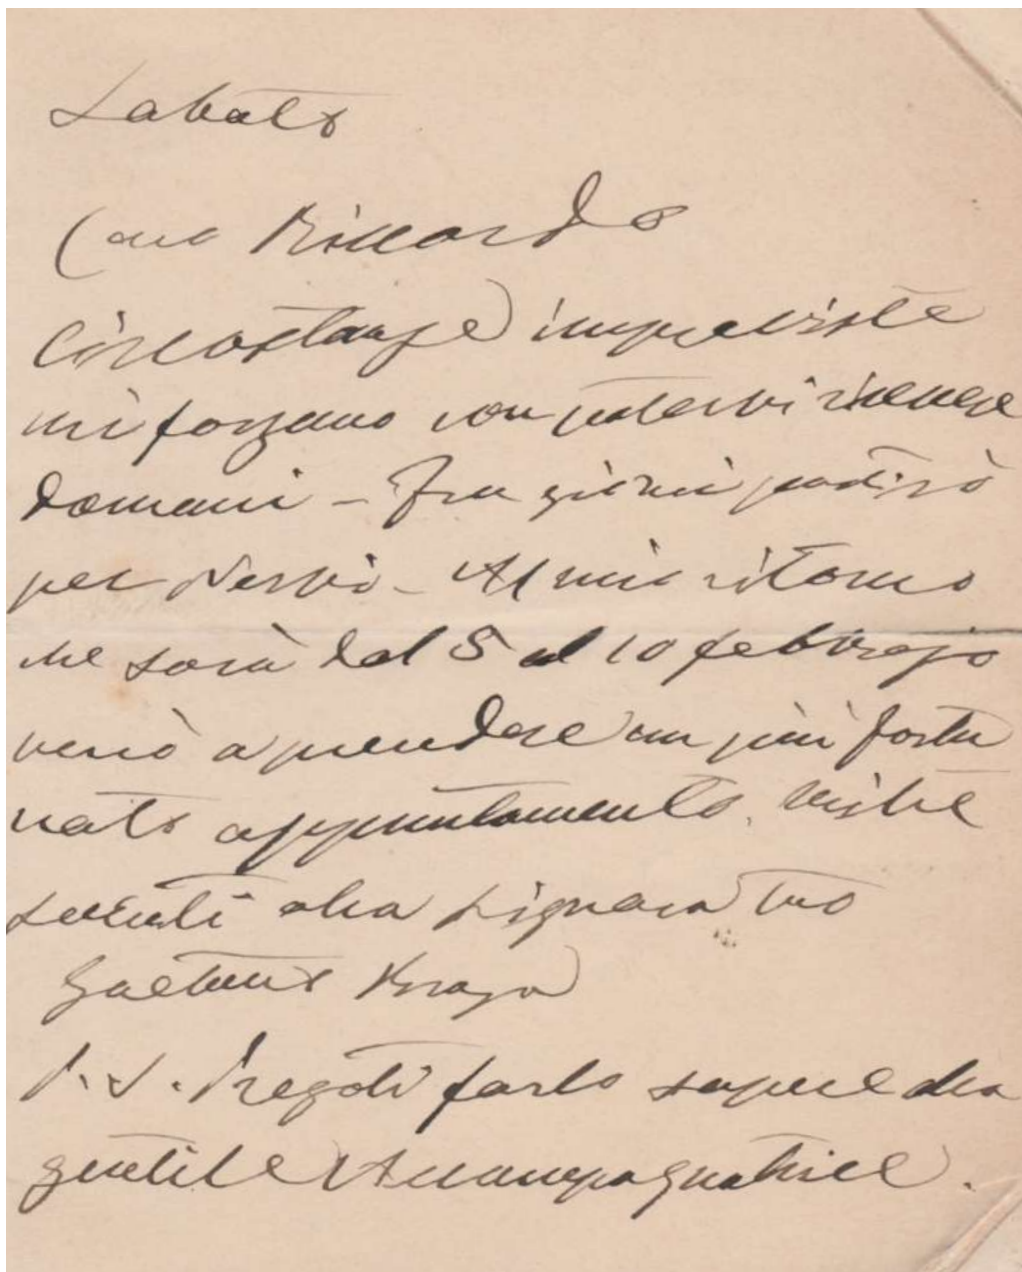 Sabato
Caro Riccardo
Circostanze impreviste
mi forzano non potervi venire
domani - Fra giorni partirò
per Nervi - Al mio ritorno
che sarà dal 5 al 10 febbrajo
verrò a prendere un più fortu
nato appuntamento.
saluti alla signora tuo
Gaetano Braga
P.S. Pregoti farlo sapere alla
gentile Accompagnatrice.